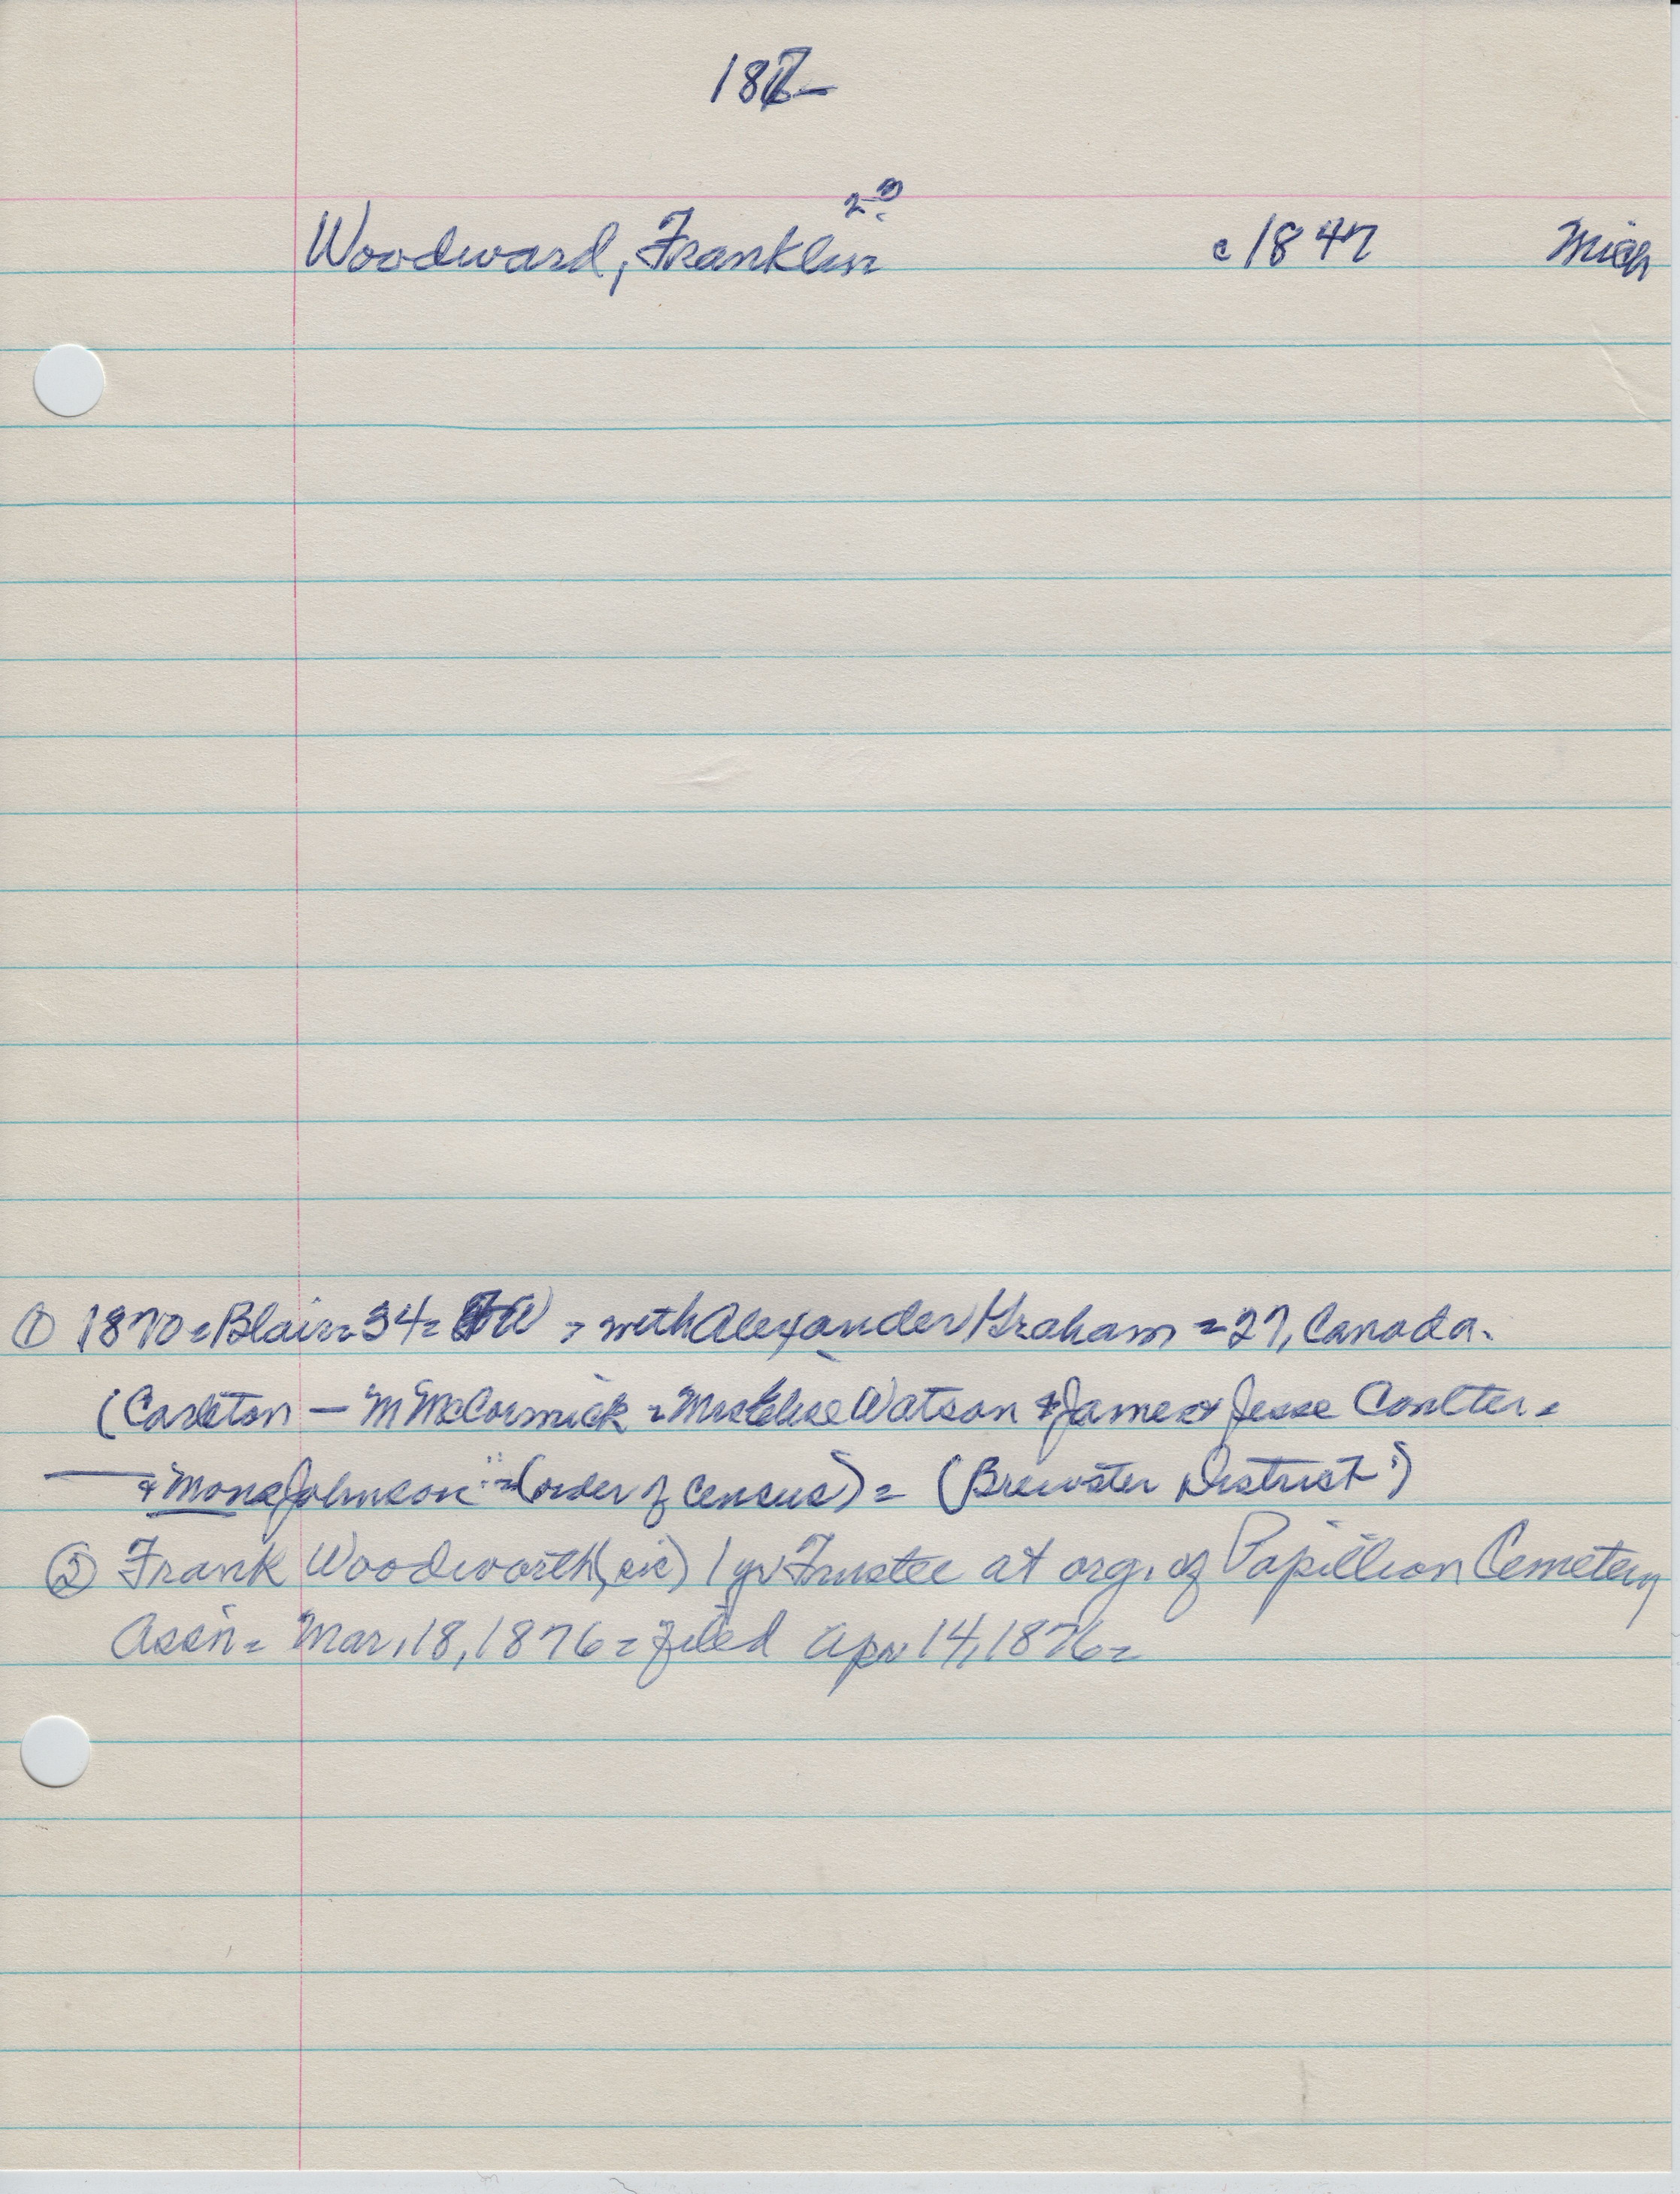 187-
2nd
Woodward, Franklin c1847 Mich
① 1870 = Blair = 34 = W = with Alexander Graham = 27, Canada.
(Carleton — M McCormick = Watson & James & Jesse Coulter =
— & Mons Johnson" = (order of census) = (Brewster District")
② Frank Woodworth (sic) 1 yr Trustee at org. of Papillion Cemetery
Assn = Mar. 18, 1876 = filed Apr 14, 1876 =